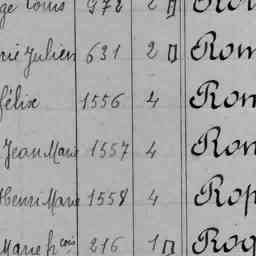 ge Louis 972 2
rie Julien 631 2 Rom
félix 1556 4 Rom
Jean Marie 1557 4 Rom
Henri Marie 1558 4 Rop
Marie fcois 216 1 Rog